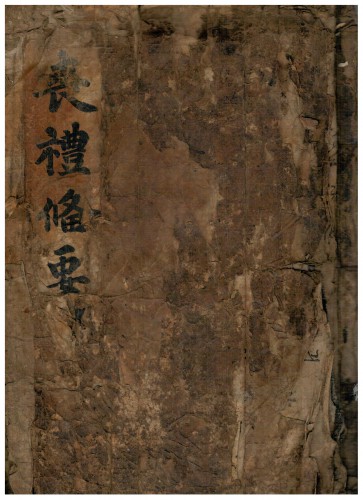 喪禮備要